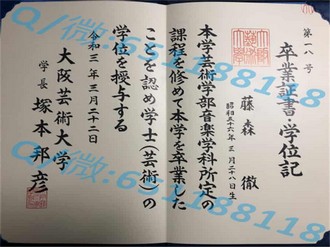 第一八号
卒業証書・学位記
藤森 徹
昭和五十六年 三月二十八日生
本学芸術学部音楽学科所定の
課程を修めて本学を卒業した
ことを認め学士(芸術)の
学位を授与する
令和三年三月二十二日
大阪芸術大学
学長 塚本邦彦
Q/微:651188118
Q/微:651188118